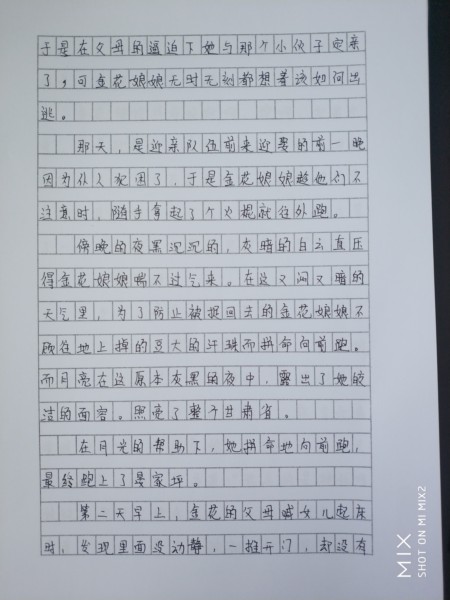 于是在父母的逼迫下她与那个小伙子定亲
了,可金花娘娘无时无刻都想着该如何出
逃。
那天,是迎亲队伍前来迎娶的前一晚
因为仆人犯困了,于是金花娘娘趁他们不
注意时,随手拿起了个火棍就往外跑。
傍晚的夜黑沉沉的,灰暗的白云直压
得金花娘娘喘不过气来。在这又闷又暗的
天气里,为了防止被捉回去的金花娘娘不
顾往地上掉的豆大的汗珠而拼命向前跑。
而月亮在这原本灰黑的夜中,露出了她皎
洁的面容。照亮了整个甘肃省。
在月光的帮助下,她拼命地向前跑,
最终跑上了晏家坪。
第二天早上,金花的父母喊女儿起床
时,发现里面没动静,一推开门,却没有
MIX
SHOT ON MI MIX2